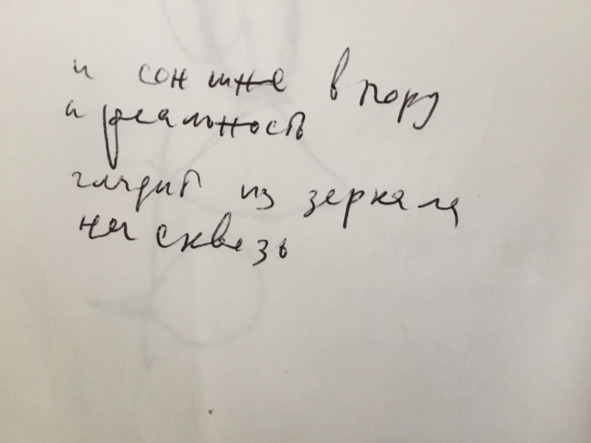 и сон мне в пору
и реальность
глядит из зеркала
на сквозь